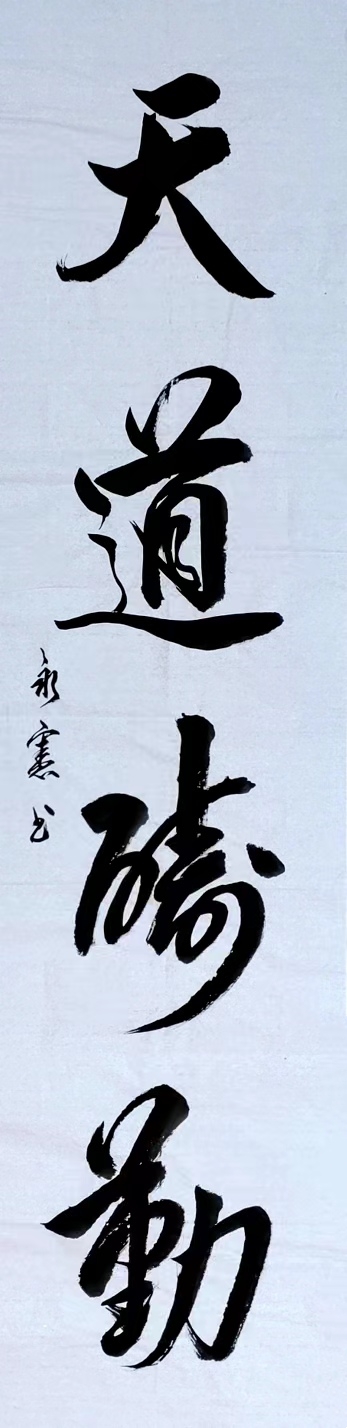 天道酬勤
永憲书